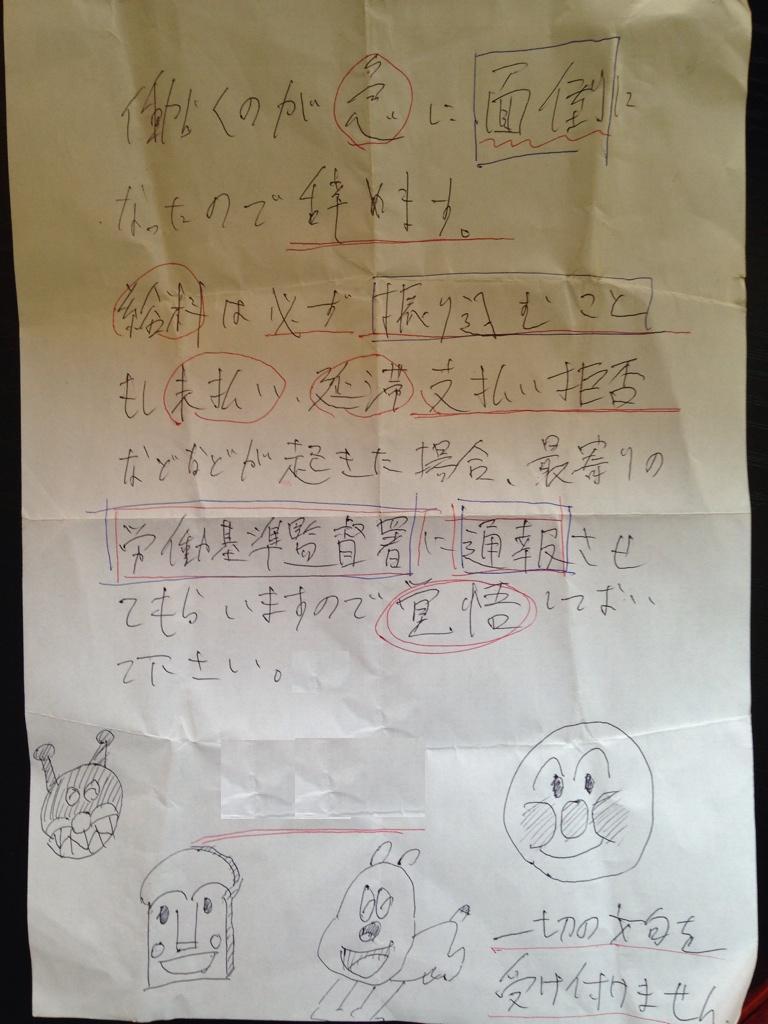 働くのが急に面倒に
なったので辞めます。
給料は必ず振り込むこと
もし未払い、延滞、支払い拒否
などなどが起きた場合、最寄りの
労働基準監督署に通報させ
てもらいますので覚悟しておい
て下さい。
一切の文句を
受け付けません。